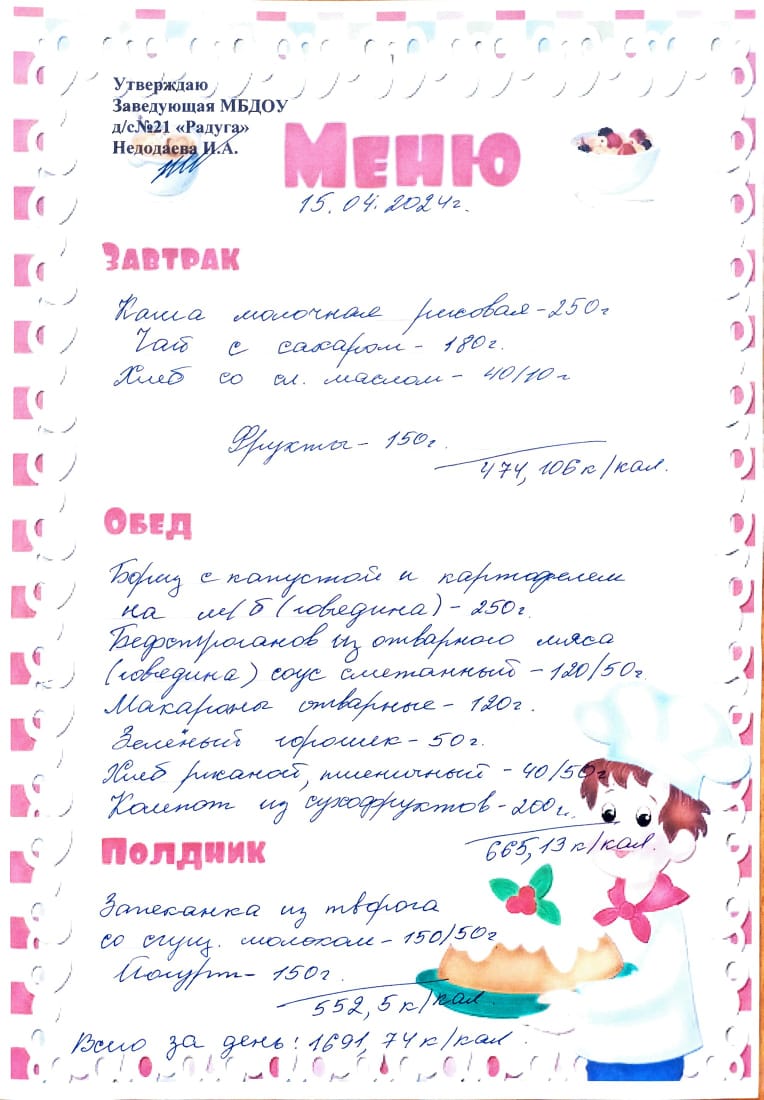 Утверждаю
Заведующая МБДОУ
д/с№21 «Радуга»
Недодаева И.А.
Меню
15.04.2024г.
Завтрак
Каша молочная рисовая - 250г
Чай с сахаром - 180г.
Хлеб со сл. маслом - 40/10г
Фрукты - 150г.
474,106к/кал.
Обед
Борщ с капустой и картофелем
на м/б (говядина) - 250г.
Бефстроганов из отварного мяса
(говядина) соус сметанный - 120/50г.
Макароны отварные - 120г.
Зелёный горошек - 50г.
Хлеб ржаной, пшеничный - 40/50г
Компот из сухофруктов - 200г.
665,13к/кал.
Полдник
Запеканка из творога
со сгущ. молоком - 150/50г
Йогурт - 150г.
552,5к/кал.
Всего за день: 1691,74к/кал.